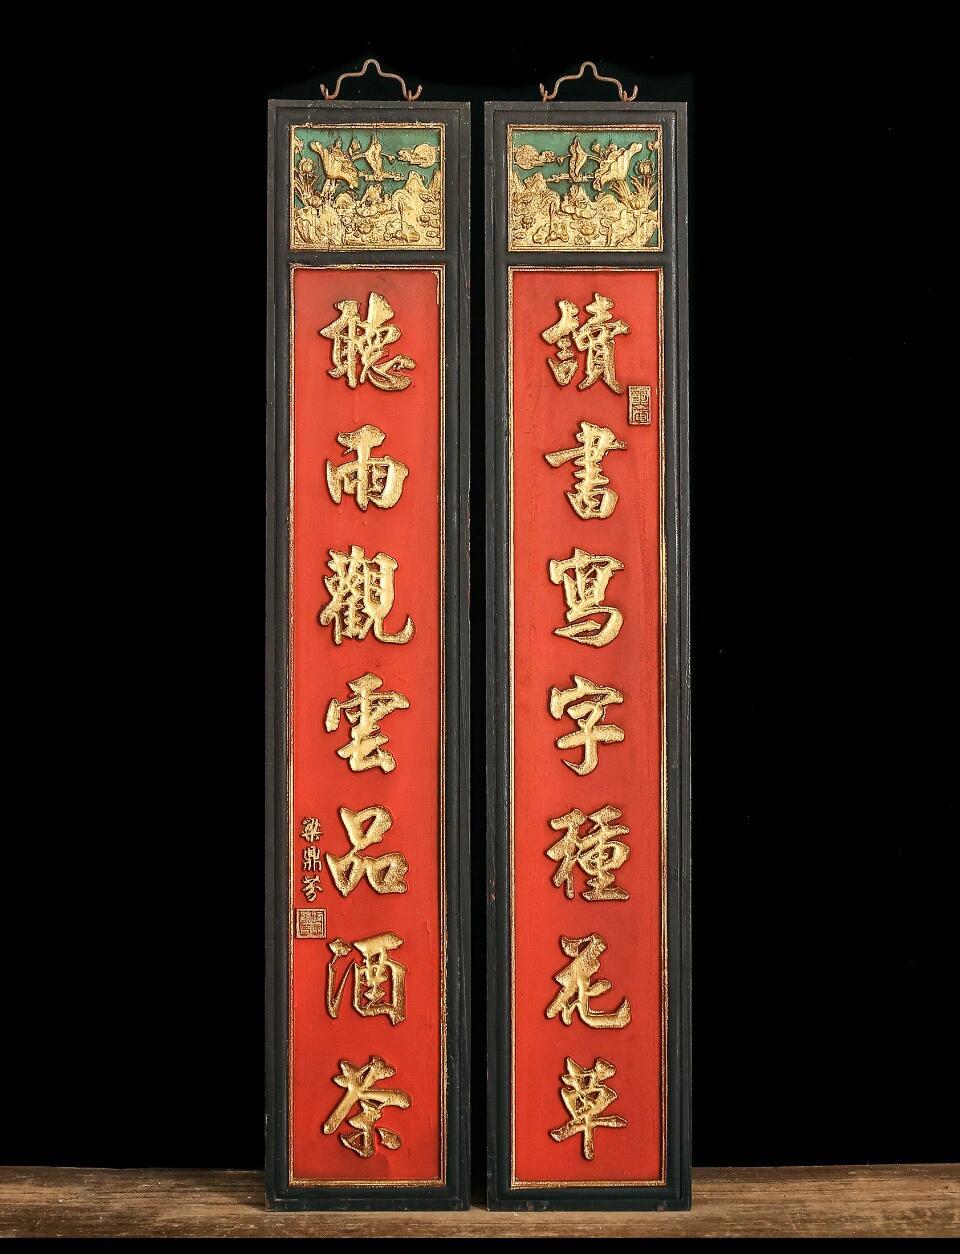 讀書寫字種花草
聽雨觀雲品酒茶
梁鼎芬